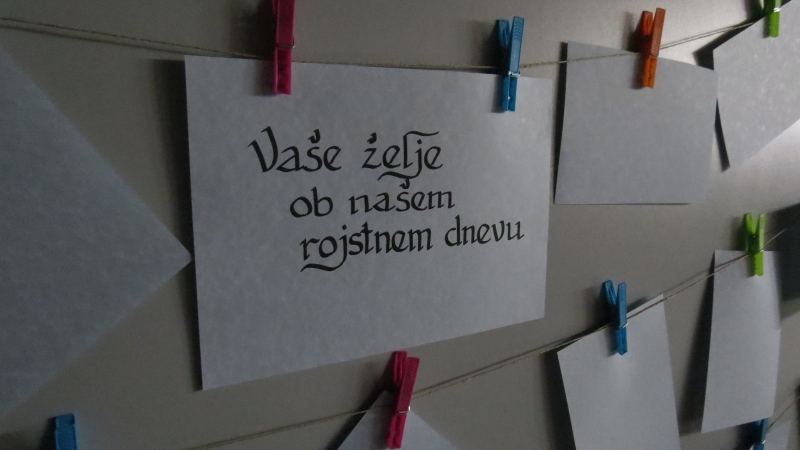 Vaše želje
ob našem
rojstnem dnevu